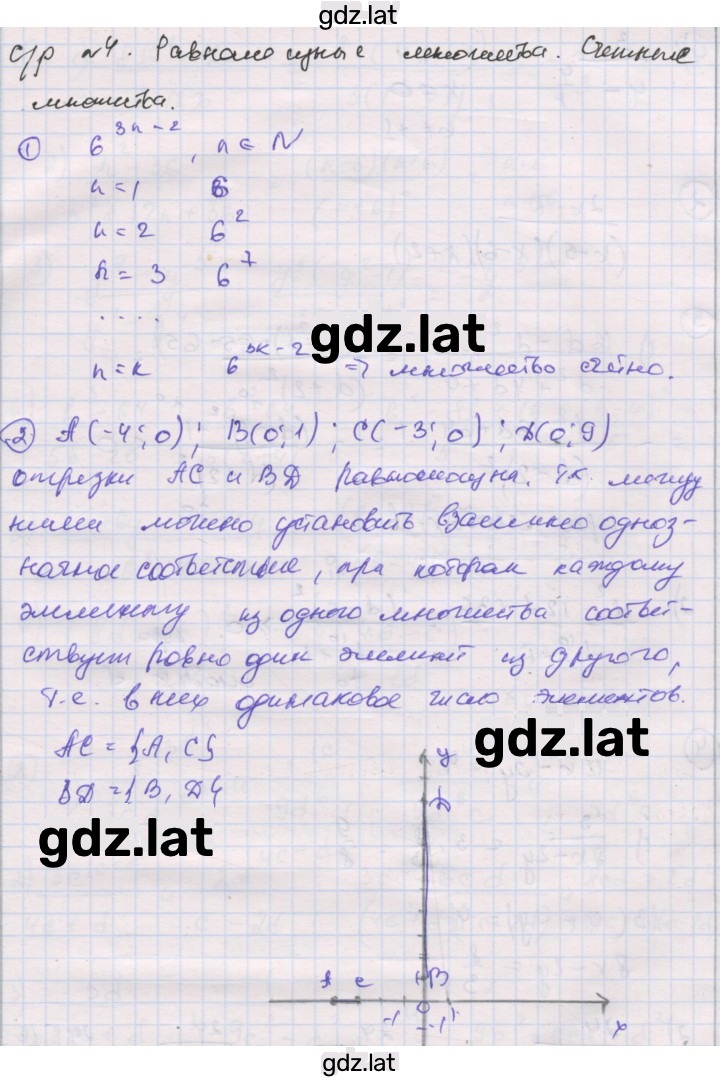 gdz.lat
С/р №4. Равномощные множества. Счетные
множества.
① 6^{3n-2}, n ∈ N
n = 1 6
n = 2 6^2
n = 3 6^7
. . . .
gdz.lat
n = k 6^{3k-2} => множество счётно.
② A(-4; 0); B(0; 1); C(-3; 0); D(0; 9)
отрезки AC и BD равномощны, т.к. между
ними можно установить взаимно одноз-
начное соответствие, при котором каждому
элементу из одного множества соответ-
ствует ровно один элемент из другого,
т.е. в них одинаковое число элементов.
AC = {A, C}
BD = {B, D}
gdz.lat
gdz.lat
y
D
A C B
-1 0 1
-1
x
gdz.lat